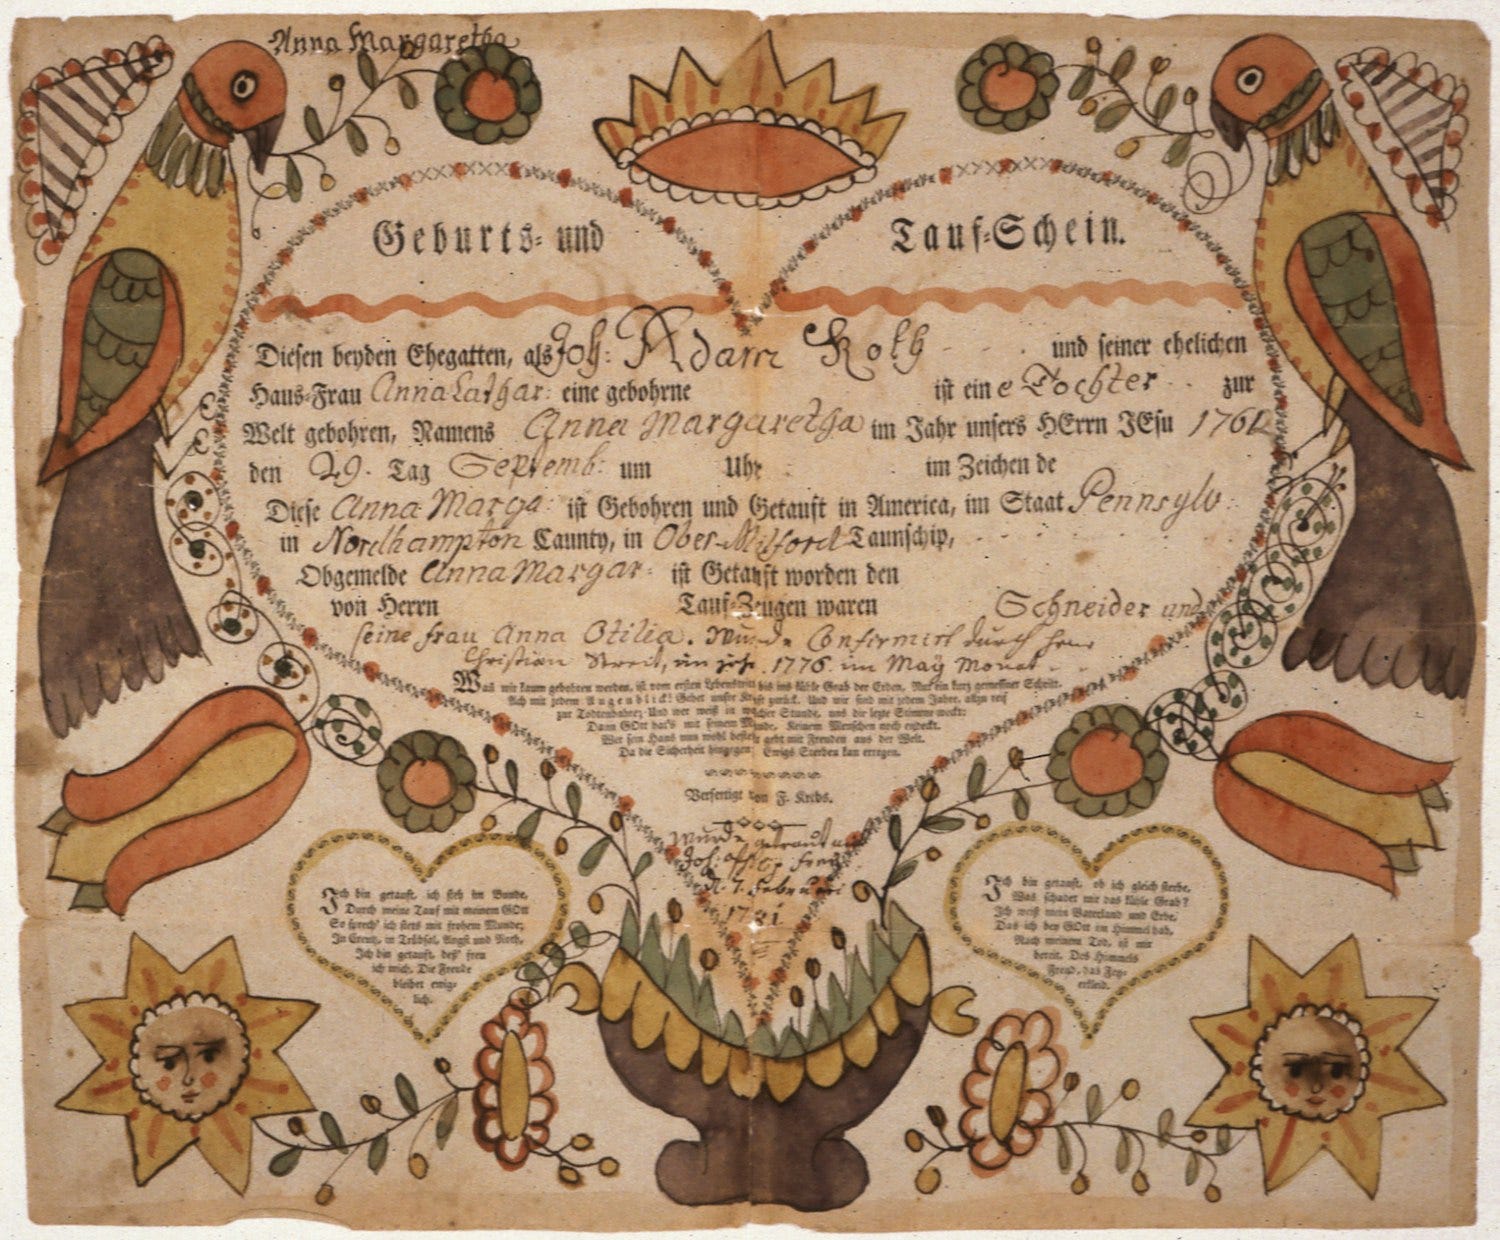 Anna Margaretha
Geburts- und Tauf-Schein.
Diesen beyden Ehegatten, als Joh: Adam Roth und seiner ehelichen
Haus-Frau Anna Cathar: eine gebohrne ist eine Tochter zur
Welt gebohren, Namens Anna Margaretha im Jahr unsers HErrn JEsu
den 29. Tag Septemb: um Uhr im Zeichen de
Diese Anna Marga: ist Gebohren und Getauft in America, im Staat Pennsylv:
in Nordhampton Caunty, in Ober-Milford Taunschip,
Obgemelde Anna Margar: ist Getauft worden den
von Herrn Tauf-Zeugen waren Schneider und
seine frau Anna Otilia. Wurde Confirmirt durch Herr
Christian Streit, im jahr 1776 im May Monat
Was wir kaum gebohren werden, ist vom ersten Lebenstritt bis ins kühle Grab der Erden, Nur ein kurz gemessner Schritt.
Ach mit jedem Augenblick! Gehet unsre Kraft zurück, Und wir sind mit jedem Jahre, allzu reif
zur Todtenbahre; Und wer weiß in welcher Stunde, uns die lezte Stimme weckt:
Dann GOtt hat's mit seinem Munde, Keinem Menschen noch endeckt.
Wer sein Haus nun wohl bestellt geht mit Freuden aus der Welt.
Da die Sicherheit hingegen Ewigs Sterben kan erregen.
Verfertigt von F. Krebs.
Wurde getraut
Joh:
d. 7. Februari
1781
Ich bin getauft, ich steh im Bunde,
Durch meine Tauf mit meinem GOtt
So sprech' ich stets mit frohem Munde;
In Creutz, in Trübsal, Angst und Noth,
Ich bin getauft, deß' freu
ich mich, Die Freude
bleibet ewig-
lich.
Ich bin getauft, ob ich gleich sterbe,
Was schadet mir das kühle Grab?
Ich weiß mein Vaterland und Erbe,
Das ich bey GOtt im Himmel hab,
Nach meinem Tod, ist mir
bereit, Des Himmels
Freud, das Fey-
erkleid.